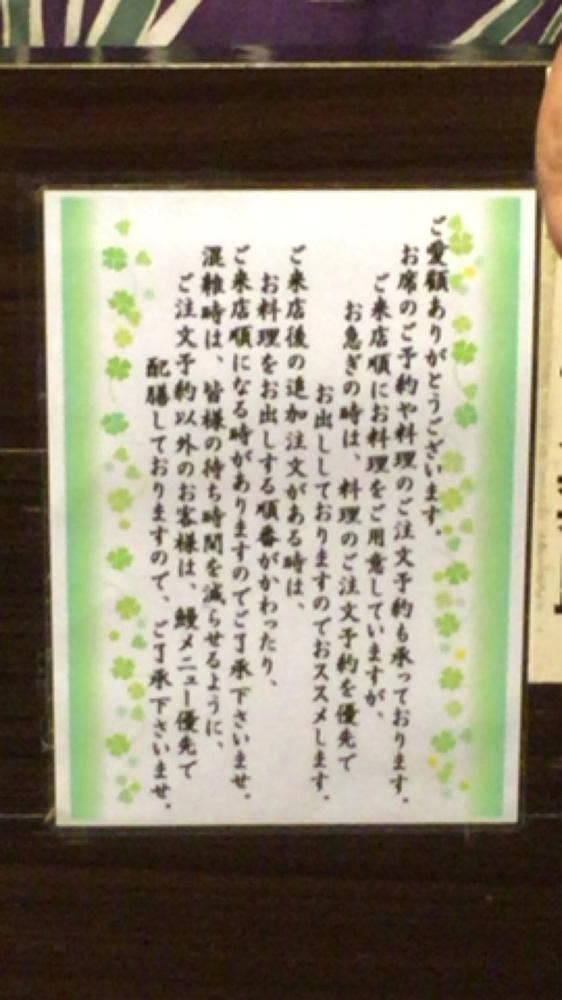 ご愛顧ありがとうございます。
お席のご予約や料理のご注文予約も承っております。
ご来店順にお料理をご用意していますが、
お急ぎの時は、料理のご注文予約を優先で
お出ししておりますのでおススメします。
ご来店後の追加注文がある時は、
お料理をお出しする順番がかわったり、
ご来店順になる時がありますのでご了承下さいませ。
混雑時は、皆様の待ち時間を減らせるように、
ご注文予約以外のお客様は、鰻メニュー優先で
配膳しておりますので、ご了承下さいませ。